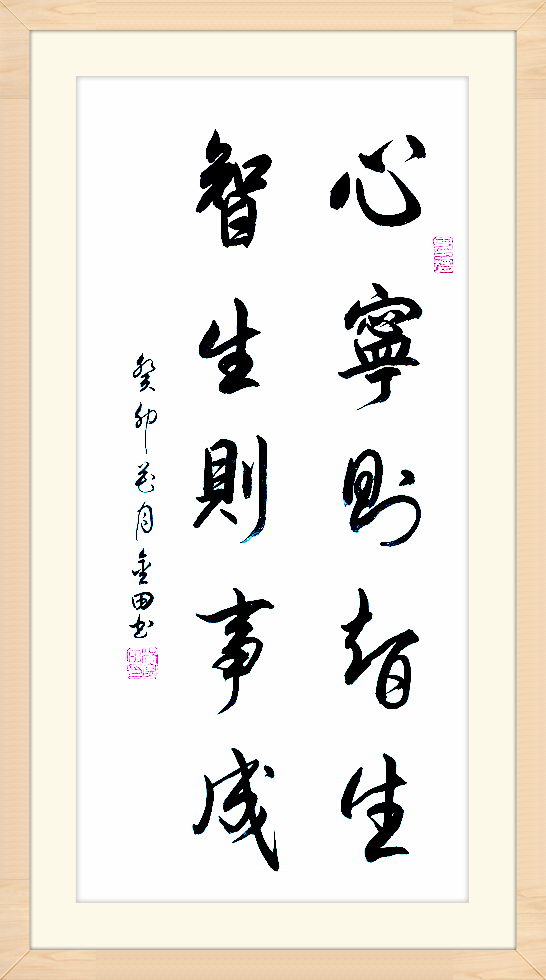 心寧則智生
智生則事成
癸卯花月金田书